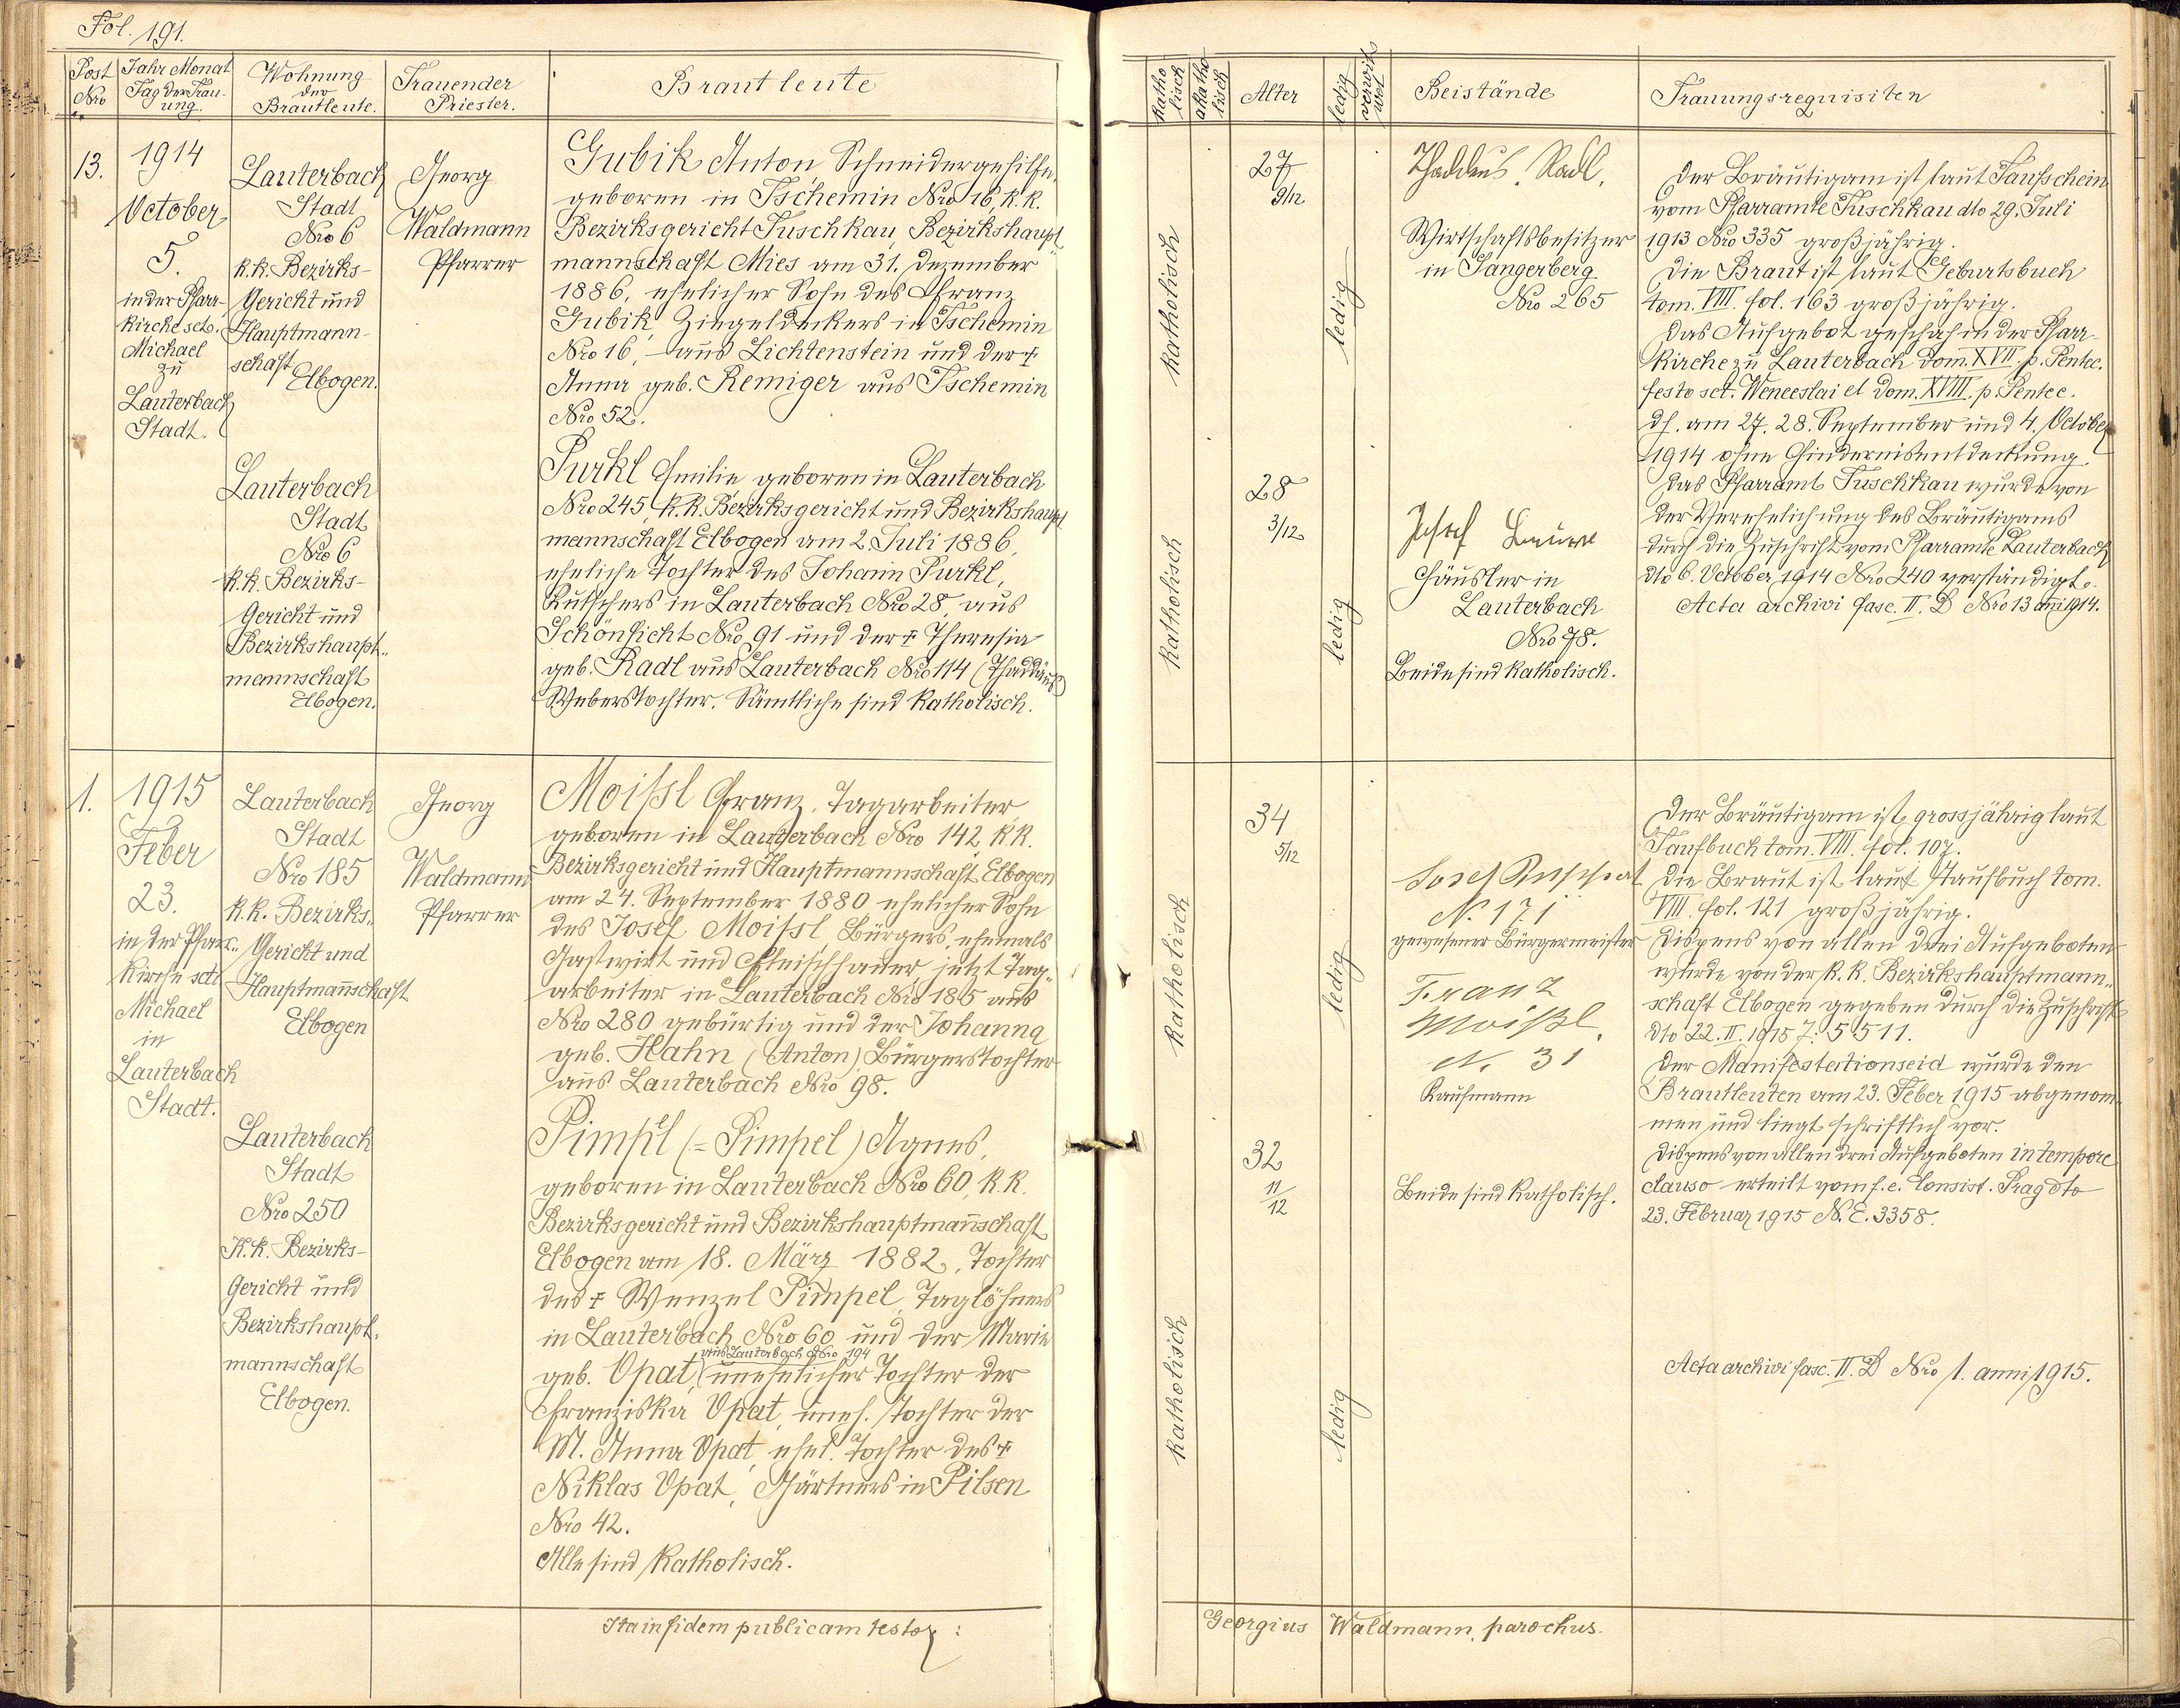 Fol. 191.
Post Nro
Jahr Monat Tag der Trau-ung.
Wohnung der Brautleute.
Trauender Priester.
Brautleute
13.
1914
October
5.
in der Pfarr-
kirche sct.
Michael
zu
Lauterbach
Stadt.
Lauterbach
Stadt
Nro 6
k.k. Bezirks-
Gericht und
Hauptmann-
schaft
Elbogen.
Lauterbach
Stadt
Nro 6
k.k. Bezirks-
Gericht und
Bezirkshaupt-
mannschaft
Elbogen.
Georg
Waldmann
Pfarrer
Gubik Anton, Schneidergehilfe,
geboren in Tschemin Nro 16, k.k.
Bezirksgericht Tuschkau, Bezirkshaupt
mannschaft Mies am 31. Dezember
1886, ehelicher Sohn des Franz
Gubik Ziegeldeckers in Tschemin
Nro 16, aus Lichtenstein und der †
Anna geb. Remiger aus Tschemin
Nro 52.
Purkl Emilie geboren in Lauterbach
Nro 245, k.k. Bezirksgericht und Bezirkshaupt
mannschaft Elbogen am 2. Juli 1886,
eheliche Tochter des Johann Purkl,
Kutschers in Lauterbach Nro 28, aus
Schönficht Nro 91 und der † Theresia
geb. Radl aus Lauterbach Nro 114 (Thaddäus)
Weberstochter. Sämtliche sind katholisch.
1.
1915
Feber
23.
in der Pfarr-
kirche sct.
Michael
in
Lauterbach
Stadt.
Lauterbach
Stadt
Nro 185
k.k. Bezirks-
Gericht und
Hauptmannschaft
Elbogen
Lauterbach
Stadt
Nro 250
K.k. Bezirks-
Gericht und
Bezirkshaupt-
mannschaft
Elbogen.
Georg
Waldmann
Pfarrer
Moißl Franz, Tagarbeiter
geboren in Lauterbach Nro 142 k.k.
Bezirksgericht und Hauptmannschaft Elbogen
am 24. September 1880 ehelicher Sohn
des Josef Moißl Bürgers, ehemals
Gastwirt und Fleischhauer, jetzt Tag-
arbeiter in Lauterbach Nro 185 aus
Nro 280 gebürtig und der Johanna
geb. Hahn (Anton) Bürgerstochter
aus Lauterbach Nro 98.
Pimpl (= Pimpel) Agnes,
geboren in Lauterbach Nro 60, k.k.
Bezirksgericht und Bezirkshauptmannschaft
Elbogen am 18. März 1882, Tochter
des † Wenzel Pimpel, Taglöhners
in Lauterbach Nro 60 und der Marie
aus Lauterbach Nro 194
geb. Opat, unehelicher Tochter der
Franziska Opat, uneh. Tochter der
M. Anna Opat, ehel. Tochter des †
Niklas Opat, Gärtners in Pilsen
Nro 42.
Alle sind katholisch.
Ita in fidem publicam testor:
katho lisch
akatho lisch
Alter
ledig
verwit wet
Beistände
Trauungsrequisiten
katholisch
27
9/12
ledig
Thaddäus Radl,
Wirtschaftsbesitzer
in Sangerberg
Nro 265
katholisch
28
3/12
ledig
Josef
Häusler in
Lauterbach
Nro 78.
Beide sind katholisch.
Der Bräutigam ist laut Taufschein
vom Pfarramte Tuschkau dto 29. Juli
1913 Nro 335 großjährig.
Die Braut ist laut Geburtsbuch
tom. VIII. fol. 163 großjährig.
Das Aufgebot geschah in der Pfarr-
kirche zu Lauterbach Dom. XVII. p. Pentec.
festo sct. Wenceslai et Dom. XVIII. p. Pentec.
dh. am 27. 28. September und 4. October
1914 ohne Hindernisentdeckung.
Das Pfarramt Tuschkau wurde von
der Verehelichung des Bräutigams
durch die Zuschrift vom Pfarramte Lauterbach
dto 6. October 1914 Nro 240 verständigt.
Acta archivi fasc. II. D Nro 13 anni 1914.
katholisch
34
5/12
ledig
Josef
N. 171
gewesener Bürgermeister
Franz
Moißl.
N. 31
Kaufmann
katholisch
32
11/12
ledig
Beide sind katholisch.
Der Bräutigam ist grossjährig laut
Taufbuch tom. VIII. fol. 107.
Die Braut ist laut Taufbuch tom.
VIII. fol. 121 großjährig.
Dispens von allen drei Aufgeboten
wurde von der k.k. Bezirkshauptmann-
schaft Elbogen gegeben durch die Zuschrift
dto 22. II. 1915 Z. 5511.
Der Manifestationseid wurde den
Brautleuten am 23. Feber 1915 abgenom-
men und liegt schriftlich vor.
Dispens von allen drei Aufgeboten in tempore
clauso erteilt vom f.e. Consist. Prag dto
23. Februar 1915 N.E. 3358.
Acta archivi fasc. II. D Nro 1. anni 1915.
Georgius Waldmann, parochus.